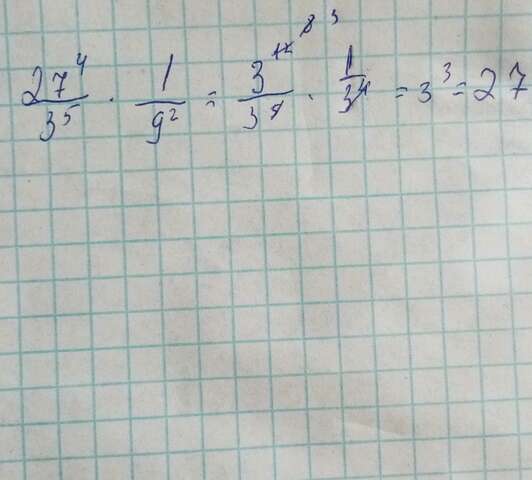 27⁴/3⁵ · 1/9² = 3¹²/3⁵ · 1/3⁴ = 3³ = 27